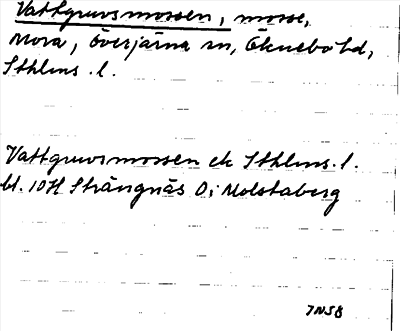 Vattgruvsmossen, mosse,
Mora, Överjärna sn, Öknebo hd,
Sthlms. l.
Vattgruvsmossen ek Sthlms. l.
bl. 10H Strängnäs 0i Molstaberg
JNS8